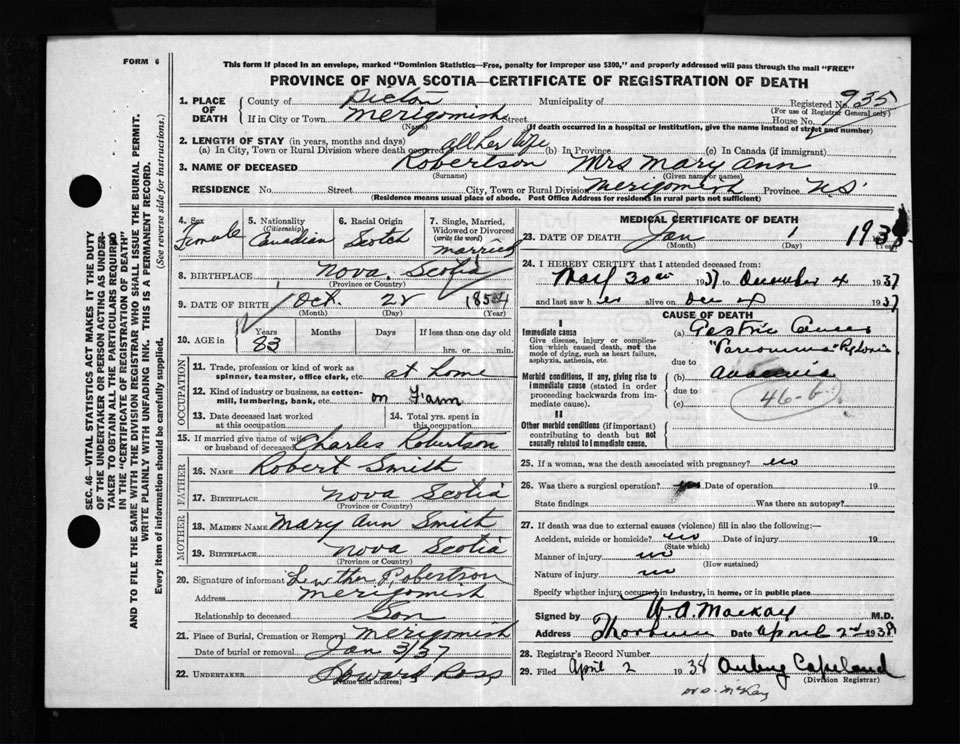 FORM 6
This form if placed in an envelope, marked "Dominion Statistics—Free, penalty for improper use $300," and properly addressed will pass through the mail "FREE"
PROVINCE OF NOVA SCOTIA—CERTIFICATE OF REGISTRATION OF DEATH
SEC. 46—VITAL STATISTICS ACT MAKES IT THE DUTY
OF THE UNDERTAKER OR PERSON ACTING AS UNDER-
TAKER TO OBTAIN ALL THE PARTICULARS REQUIRED
IN THE "CERTIFICATE OF REGISTRATION OF DEATH"
AND TO FILE THE SAME WITH THE DIVISION REGISTRAR WHO SHALL ISSUE THE BURIAL PERMIT.
WRITE PLAINLY WITH UNFADING INK. THIS IS A PERMANENT RECORD.
Every item of information should be carefully supplied. (See reverse side for instructions.)
1. PLACE OF DEATH
County of Pictou Municipality of Registered No. 935
(For use of Registrar General only)
If in City or Town Merigomish Street House No.
(Name) (If death occurred in a hospital or institution, give the name instead of street and number)
2. LENGTH OF STAY (in years, months and days)
(a) In City, Town or Rural Division where death occurred all her life (b) In Province (c) In Canada (if immigrant)
3. NAME OF DECEASED Robertson Mrs Mary Ann
(Surname) (Given name or names)
RESIDENCE No. Street City, Town or Rural Division Merigomish Province N.S.
(Residence means usual place of abode. Post Office Address for residents in rural parts not sufficient)
4. Sex Female
5. Nationality (Citizenship) Canadian
6. Racial Origin Scotch
7. Single, Married, Widowed or Divorced (write the word) married
8. BIRTHPLACE Nova Scotia
(Province or Country)
9. DATE OF BIRTH Oct. 22 1854
(Month) (Day) (Year)
10. AGE IN Years 83 Months Days If less than one day old hrs. or min.
OCCUPATION
11. Trade, profession or kind of work as spinner, teamster, office clerk, etc. at home
12. Kind of industry or business, as cotton-mill, lumbering, bank, etc. on Farm
13. Date deceased last worked at this occupation
14. Total yrs. spent in this occupation
15. If married give name of wife or husband of deceased Charles Robertson
FATHER
16. NAME Robert Smith
17. BIRTHPLACE Nova Scotia
(Province or Country)
MOTHER
18. MAIDEN NAME Mary Ann Smith
19. BIRTHPLACE Nova Scotia
(Province or Country)
20. Signature of informant Robertson
Address Merigomish
Relationship to deceased Son
21. Place of Burial, Cremation or Removal Merigomish
Date of burial or removal Jan 3/37
22. UNDERTAKER Howard Ross
(Name and address)
MEDICAL CERTIFICATE OF DEATH
23. DATE OF DEATH Jan 1 193
(Month) (Day) (Year)
24. I HEREBY CERTIFY that I attended deceased from:
30 1937 to December 4 1937
and last saw her alive on Dec 4 1937
CAUSE OF DEATH
I
Immediate cause
Give disease, injury or complication which caused death, not the mode of dying, such as heart failure, asphyxia, asthenia, etc.
(a) Gastric
due to
Morbid conditions, if any, giving rise to immediate cause (stated in order proceeding backwards from immediate cause).
(b)
due to
(c)
46-b
II
Other morbid conditions (if important) contributing to death but not causally related to immediate cause.
25. If a woman, was the death associated with pregnancy? no
26. Was there a surgical operation? Date of operation 19
State findings Was there an autopsy?
27. If death was due to external causes (violence) fill in also the following:—
Accident, suicide or homicide? no Date of injury 19
(State which)
Manner of injury no
(How sustained)
Nature of injury no
Specify whether injury occurred in industry, in home, or in public place
Signed by W. A. Mackay M.D.
Address Thorburn Date April 2nd 1938
28. Registrar's Record Number
29. Filed April 2 1938 Aubrey Copeland
(Division Registrar)
McKay